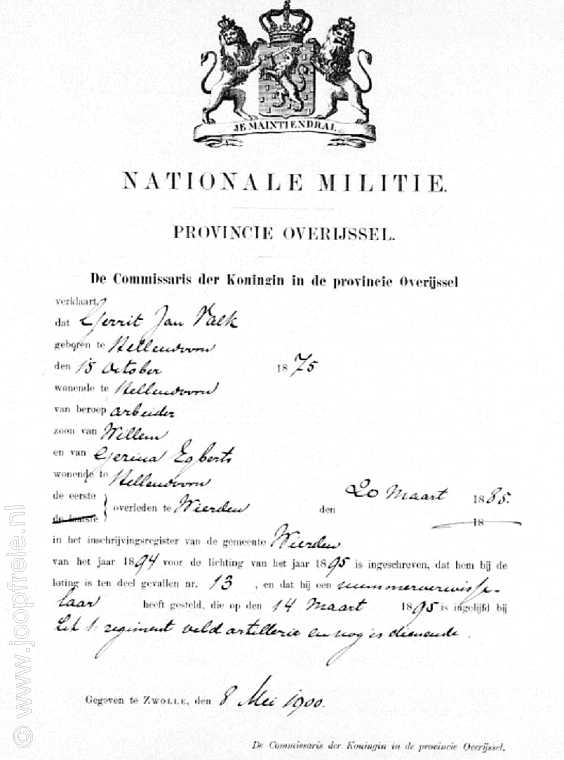 JE MAINTIENDRAI.
NATIONALE MILITIE.
PROVINCIE OVERIJSSEL.
De Commissaris der Koningin in de provincie Overijssel
verklaart,
dat Gerrit Jan Valk
geboren te Hellendoorn
den 15 October 1875
wonende te Hellendoorn
van beroep arbeider
zoon van Willem
en van Gerina Egberts
wonende te Hellendoorn
de eerste
de laatste } overleden te Wierden den 20 Maart 1885.
18
in het inschrijvingsregister van de gemeente Wierden
van het jaar 1894 voor de lichting van het jaar 1895 is ingeschreven, dat hem bij de
loting is ten deel gevallen nr. 13, en dat hij een nummerverwisse-
laar heeft gesteld, die op den 14 Maart 1895 is ingelijfd bij
het 1e regiment veld artillerie en nog is dienende.
Gegeven te ZWOLLE, den 8 Mei 1900.
De Commissaris der Koningin in de provincie Overijssel.
© www.joopfrele.nl